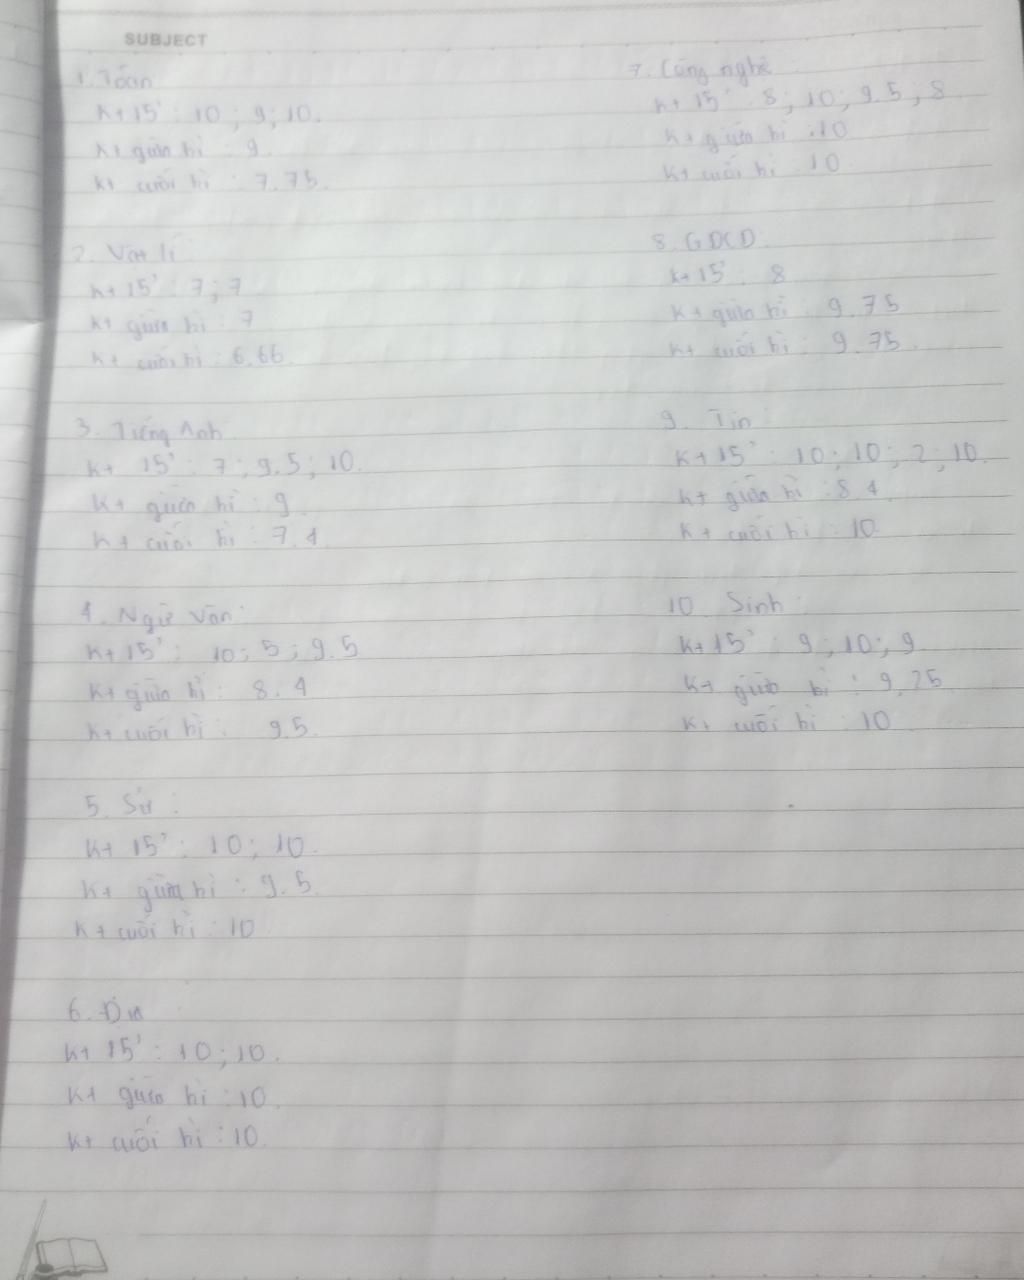 SUBJECT
1. Toán
Kt 15' : 10 ; 9 ; 10.
Kt giữa kì : 9
Kt cuối kì : 7.75.
2. Vật lí
Kt 15' : 7 ; 7
Kt giữa kì : 7
Kt cuối kì : 6.66.
3. Tiếng Anh
Kt 15' : 7 ; 9.5 ; 10.
Kt giữa kì : 9
Kt cuối kì : 7.4
4. Ngữ văn :
Kt 15' : 10 ; 5 ; 9.5
Kt giữa kì : 8.4
Kt cuối kì : 9.5.
5. Sử :
Kt 15' : 10 ; 10.
Kt giữa kì : 9.5.
Kt cuối kì : 10
6. Địa
Kt 15' : 10 ; 10.
Kt giữa kì : 10.
Kt cuối kì : 10.
7. Công nghệ
Kt 15' : 8 ; 10 ; 9.5 ; 8
Kt giữa kì : 10
Kt cuối kì : 10
8. GDCD
Kt 15' : 8
Kt giữa kì : 9.75
Kt cuối kì : 9.75
9. Tin
Kt 15' : 10 ; 10 ; ; 10.
Kt giữa kì : 8.4
Kt cuối kì : 10
10 Sinh :
Kt 15' : 9 ; 10 ; 9
Kt giữa kì : 9,25
Kt cuối kì : 10